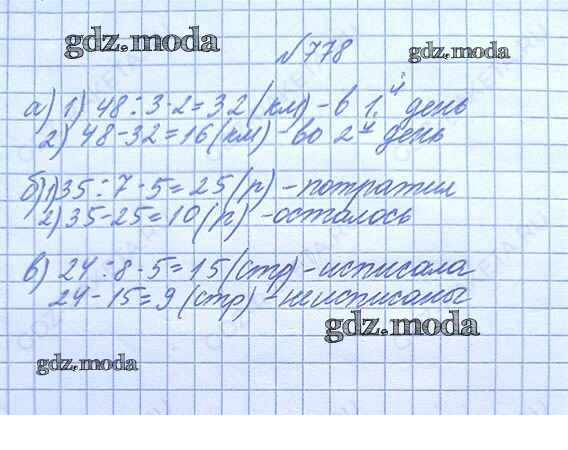 gdz.moda
№778
gdz.moda
а) 1) 48:3·2=32(км)-в 1ый день
2) 48-32=16(км)-во 2й день
б) 1) 35:7·5=25(р)-потратил
2) 35-25=10(р)-осталось
в) 24:8·5=15(стр)-исписала
24-15=9(стр)-неисписаны
gdz.moda
gdz.moda